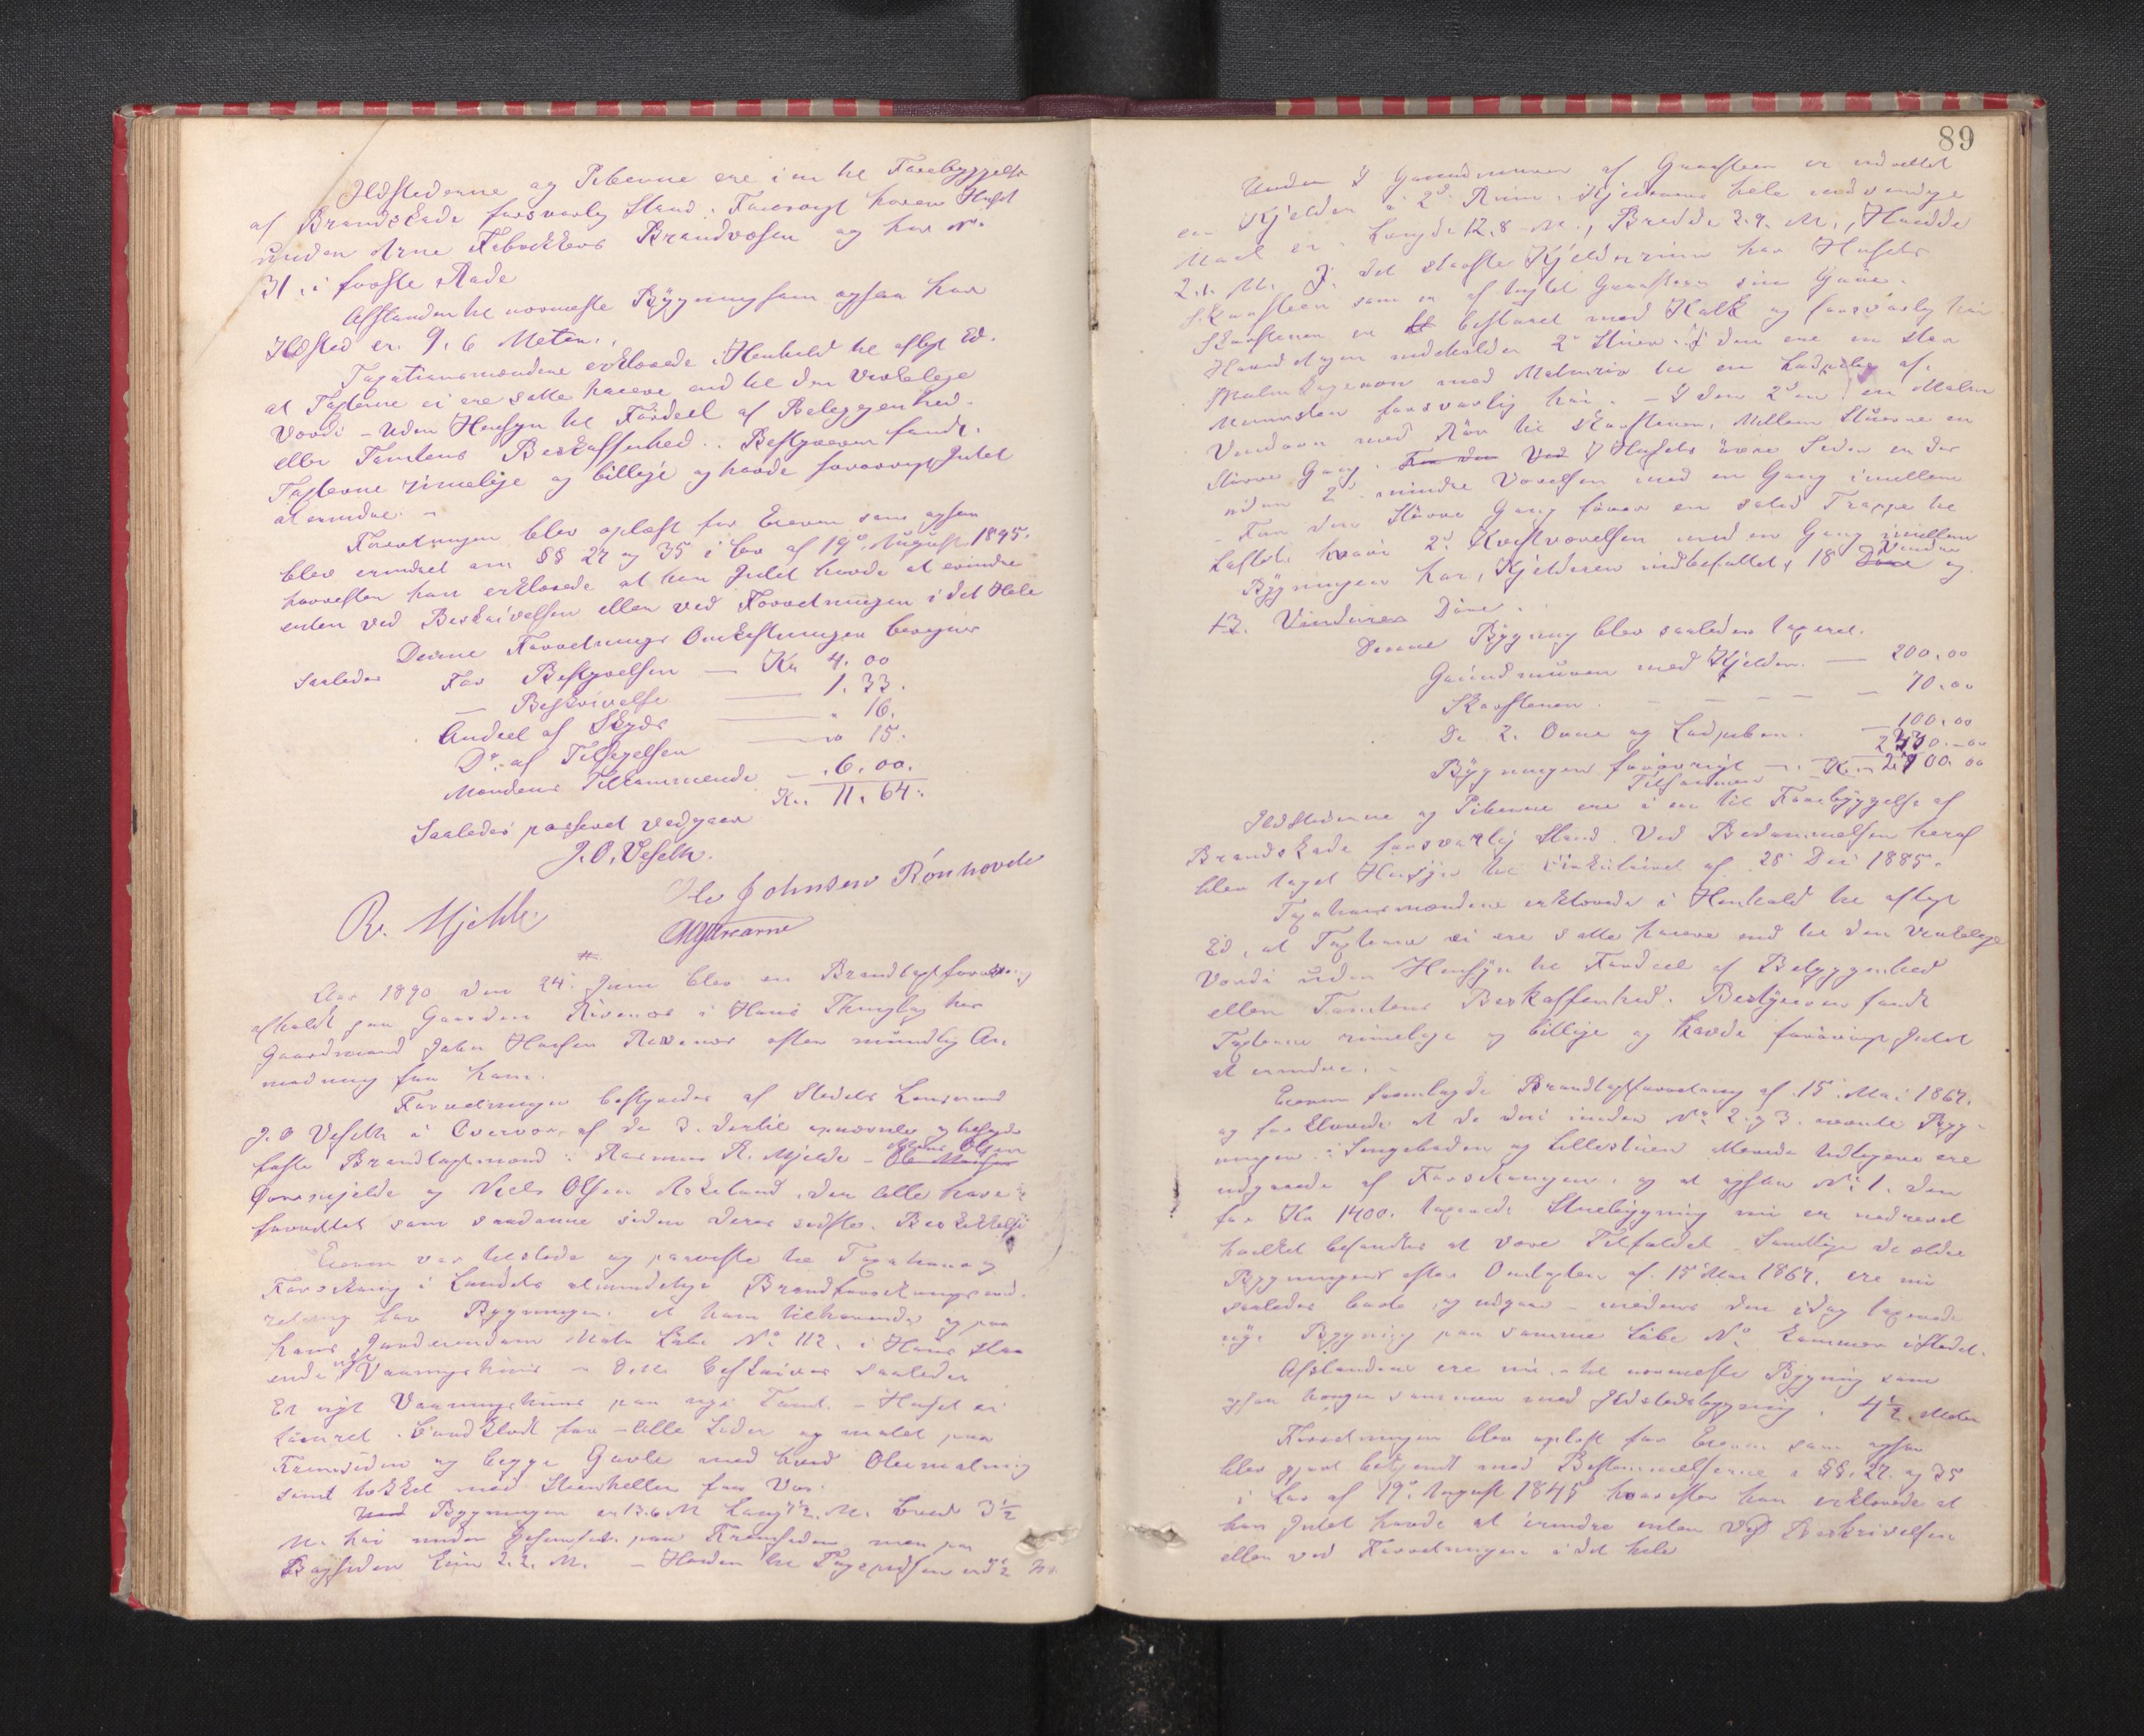 Ildstederne og Piberne ere i en til Forebyggelse
af Brandskade forsvarlig Stand. Forøvrigt hører Huset
under Arne Fabrikkers Brandvæsen og har Nr.
31 i første Rode
Afstanden til nærmeste Bygning som ogsaa har
Ildsted er 9.6 Meter.
Taxationsmændene erklærede i Henhold til aflagt Ed.
at Taxterne ei ere satte høiere end til den virkelige
Værdi - uden Hensyn til Fordeel af Beliggenhed
eller Tomtens Beskaffenhed. Bestyreren fandt
Taxterne rimelige og billige og havde forøvrigt Intet
at erindre. -
Forretningen blev oplæst for Eieren som ogsaa
blev erindret om §§ 27 og 35 i Lov af 19de August 1845.
hvorefter han erklærede at han Intet havde at erindre
enten ved Beskrivelsen eller ved Forretningen i det Hele
Denne Forretnings Omkostninger beregnes
saaledes For Bestyrelsen — Kr. 4.00
— Beskrivelse — 1.33.
Andeel af Skyds — " 16.
Do af Tilsigelsen — " 15.
Mændenes Tilkommende — 6.00.
Kr. 11.64.
Saaledes passeret vedgaaes
J. O. Veseth.
R. Mjelde Ole Johnsen Rönhovde
Aar 1890 den 24. Juni blev en Brandtaxtforretning
afholdt paa Gaarden Risnæs i Haus Thinglag hos
Gaardmand John Hansen Risnæs efter mundtlig An-
modning fra ham.
Forretningen bestyredes af Stedets Lensmand
J. O Veseth i Overvær af de 3. dertil opnævnte og beskikkede
faste Brandtaxtmænd: Rasmus R. Mjelde - Ole Monsen Olsen
og Niels Olsen Askeland, der alle have
forrettet som saadanne siden deres sidste Beskikkelse
Eieren var tilstede og paaviste til Taxation og
Forsikring i Landets almindelige Brandforsikringsind-
retning for Bygninger, et ham tilhørende og paa
hans Jordeiendom Matr. Løbe No 112. i Haus staa-
ende nyt Vaaningshuus - Dette beskrives saaledes
Et nyt Vaaningshuus paa nye Tomt. - Huset er
tømret. bordklædt paa alle Sider og malet paa
Fremsiden og begge Gavle med hvid Oliemaling
samt tækket med Steenheller paa Ves.
Bygningen er 13.6 M Lang 7½ M. bred 3½
M. høi under Gesimsen paa Fremsiden men paa
Bagsiden kun 2.2. M. - Høiden til Tagspidsen er ½ M.
89
Under Grundmuren af Graasteen er indrettet
en Kjelder i 2de Rum. Kjelderens hele indvendige
Maal er: Længde 12.8 M., Bredde 3.9. M., Høide
2.1. M. I det største Kjelderrum har Husets
Skorsteen som er af Graasteen sin Grue.
Skorstenen er bestøbet med Kalk og forsvarlig høi
Hoved Etagen indeholder 2de Stuer. I den ene en stor
Malm med Malmrør til en Ladpibe af
Muursteen forsvarlig høi. - I den 2den en Malm
Vindovn med Rør til Skorstenen. Mellem Stuerne en
større Gang. For den Ved I Husets øvre Side er der
2de mindre Værelser med en Gang imellem
- Fra den større Gang fører en solid Trappe til
Loftet, hvori 2de Kvistværelser med en Gang imellem
Bygningen har, Kjelderen indbefattet, 18 Vinduer og
13. Vinduer Døre.
Denne Bygning blev saaledes taxeret.
Grundmuren med Kjelder. — 200.00
Skorstenen. — 70.00
De 2. Ovne og Ladpiben. — 100.00
Bygningen forøvrigt — 2330.00
Tilsammen — Kr. 2700.00
Ildstederne og Piberne ere i en til Forebyggelse af
Brandskade forsvarlig Stand. Ved Bedømmelsen heraf
blev taget Hensyn til Cirkulairet af 28 Dec 1885.
Taxationsmændene erklærede i Henhold til aflagt
Ed, at Taxterne ei ere satte høiere end til den virkelige
Værdi uden Hensyn til Fordeel af Beliggenhed
eller Tomtens Beskaffenhed. Bestyreren fandt
Taxterne rimelige og billige og havde forøvrigt Intet
at erindre. -
Eieren fremlagde Brandtaxtforretning af 15. Mai 1867.
og forklarede at de deri under No 2. og 3. nævnte Byg-
ninger: Sengeboden og Lillestuen ere
udgaaede af Forsikringen, og at ogsaa No 1. den
for Kr 1400. taxerede Stuebygning nu er nedrevet
hvilket befandtes at være Tilfældet. Samtlige de ældre
Bygninger efter Omtaxten af 15 Mai 1867. ere nu
saaledes borte og udgaar - medens den idag taxerede
nye Bygning paa samme Løbe No kommer istedet.
Afstandene ere nu - til nærmeste Bygning som
ogsaa hænger sammen med Ildstedsbygning. 4½ Meter
Forretningen blev oplæst for Eieren som ogsaa
blev gjort bekjendt med Bestemmelserne i §§. 27. og 35
i Lov af 19de August 1845 hvorefter han erklærede at
han Intet havde at erindre enten ved Beskrivelsen
eller ved Forretningen i det hele